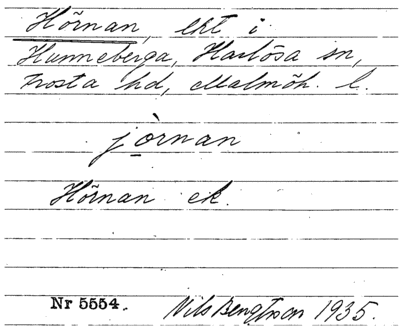 Hörnan, lht i
Hunneberga, Harlösa sn,
Frosta hd, Malmöh. l.
jòrnan
Hörnan ek.
Nr 5554. Nils Bengtson 1935.